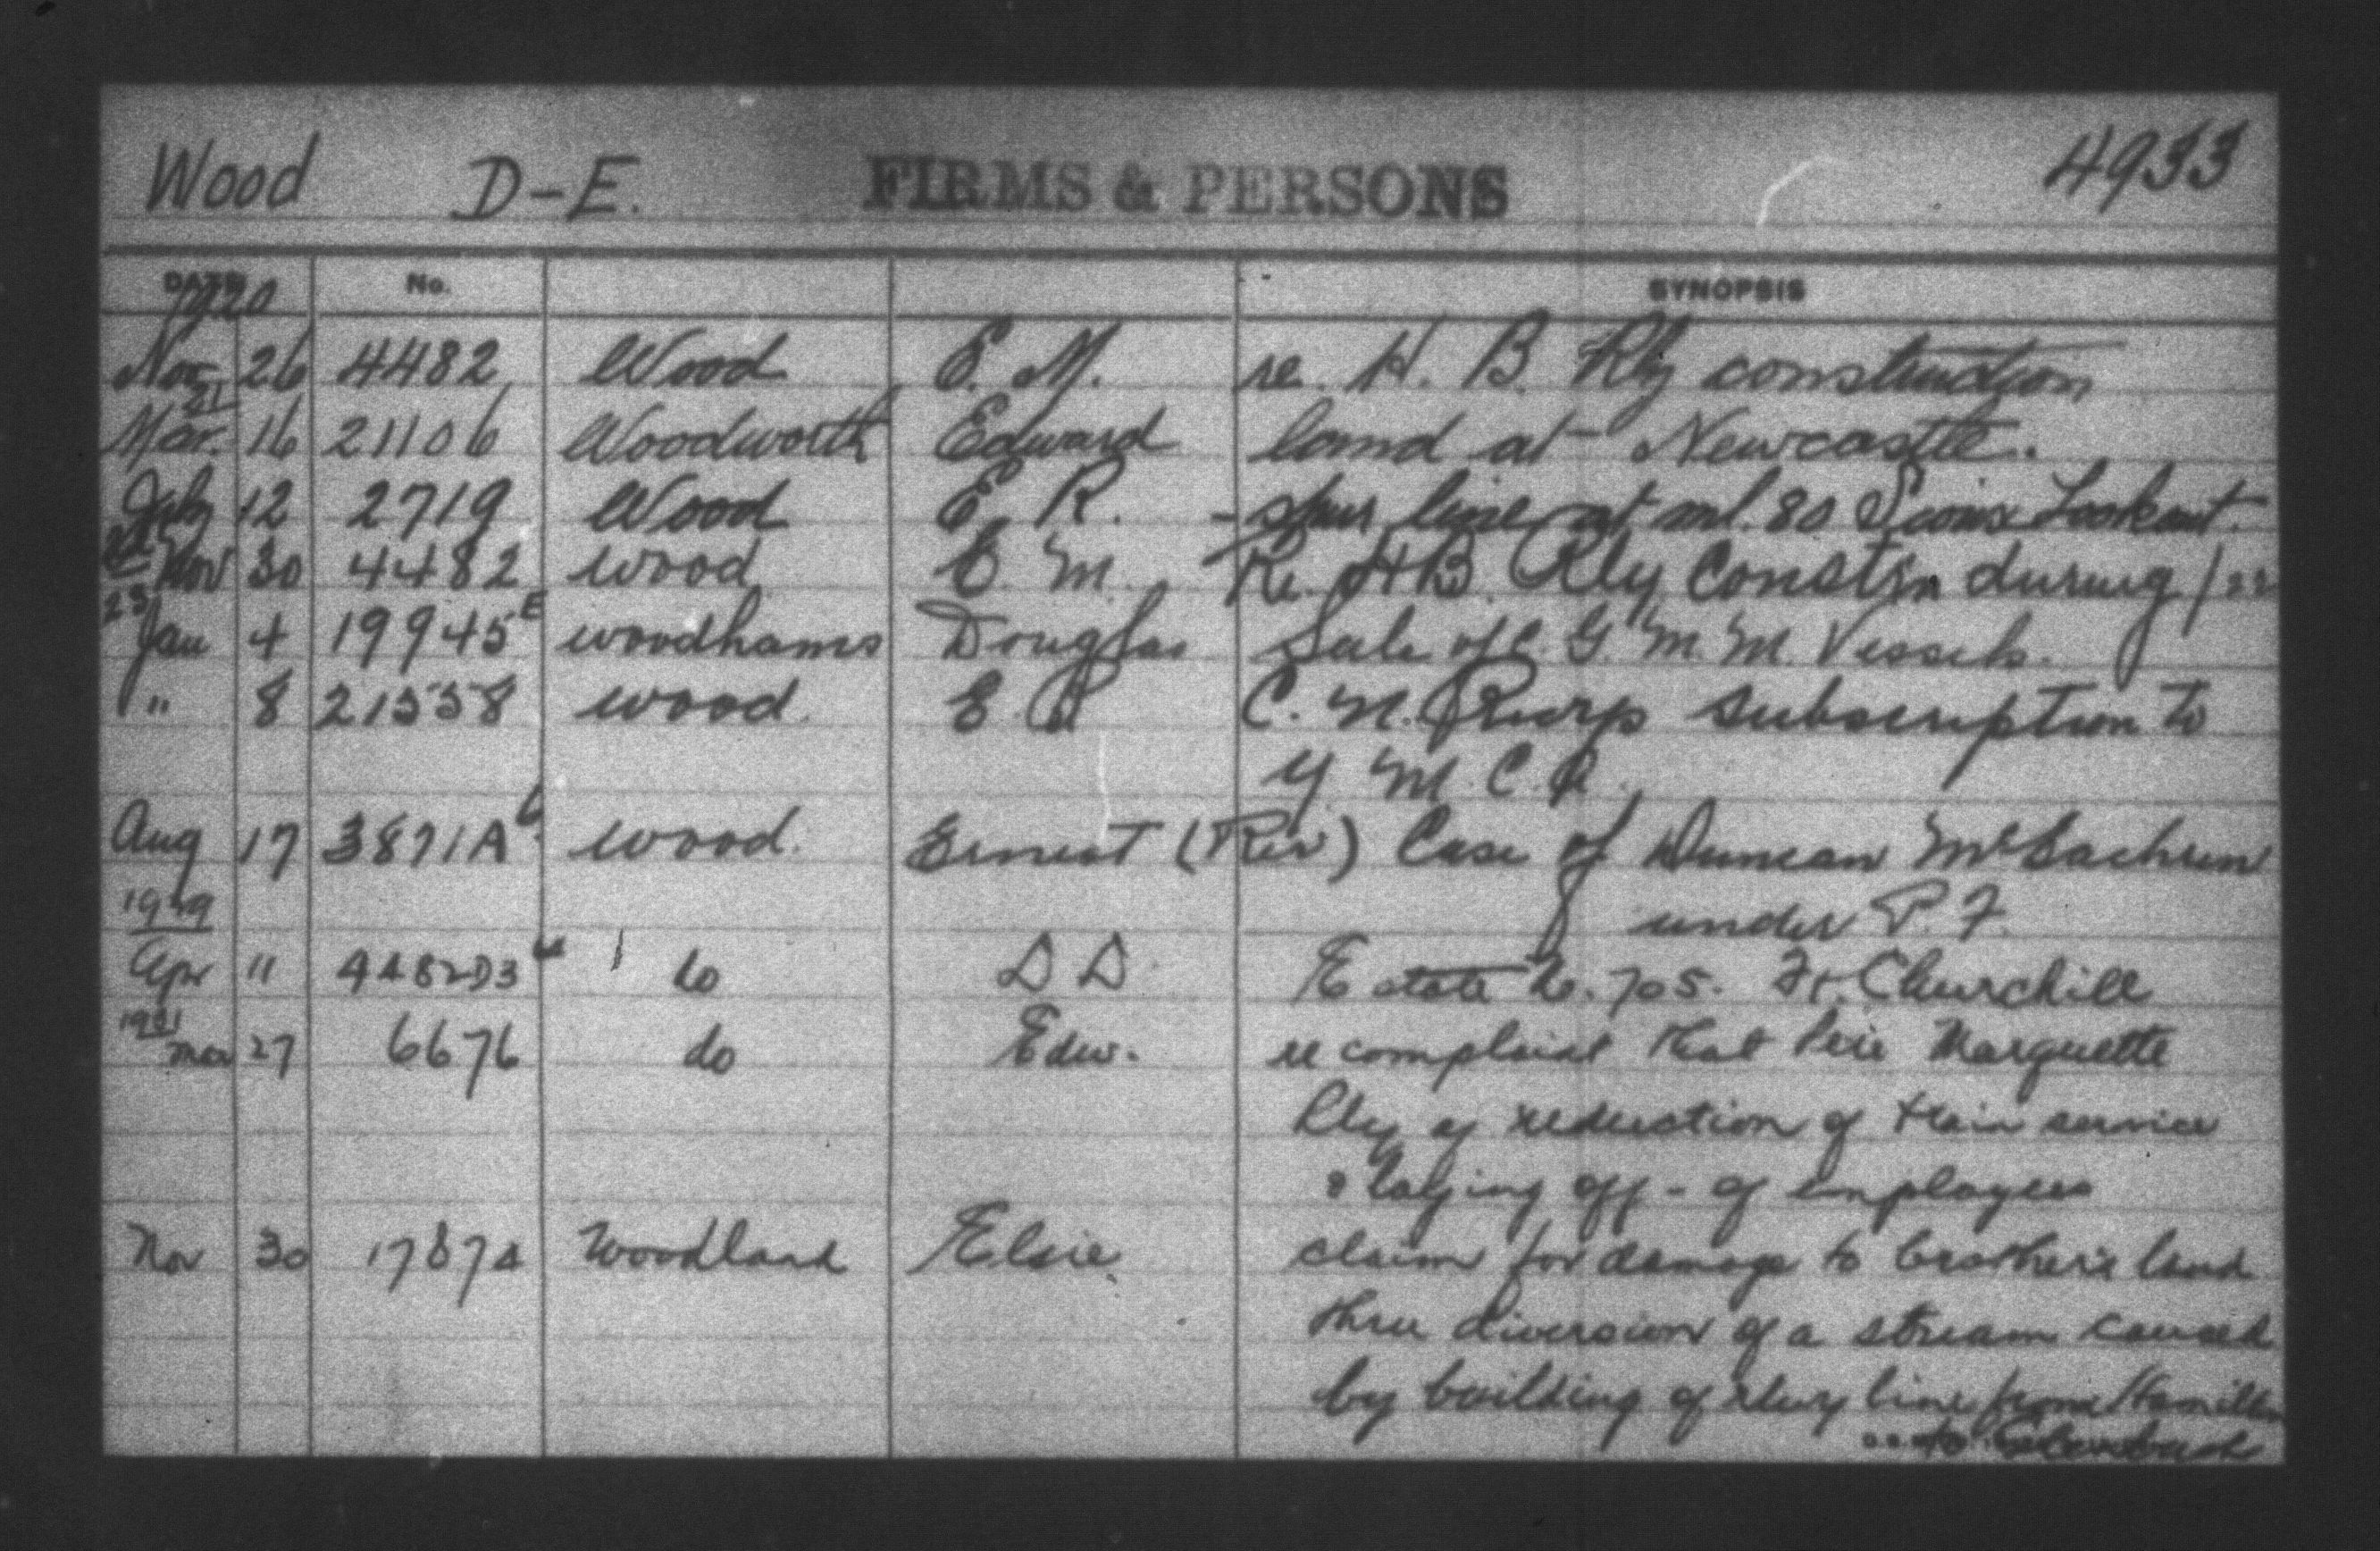 Wood D-E. FIRMS & PERSONS 4933
DATE No. SYNOPSIS
1920
Nov 26 4482 Wood E. M. re. H. B. Rly construction
21
Mar. 16 21106 Woodworth Edward land at Newcastle.
July 12 2719 Wood E. R. - spur line at ml. 80 Sioux Lookout.
22
Nov 30 4482 Wood E. M. Re. H B. Rly Constrn during /22
23
Jan 4 19945E Woodhams Douglas Sale of C. G. M. M. Vessels.
" 8 21558 Wood. E. R C. N. Rwys subscription to
Y. M. C. A.
Aug 17 3871A Wood. Ernest (Rev) Case of Duncan McEachren
under P. F.
1929
Apr 11 4482D3 do D D Estate 705. Ft. Churchill
1931
Mar 27 6676 do Edw. re complaint that Pere Marquette
Rly of reduction of train service
& laying off - of employees
Nov 30 1787 Woodland Elsie claim for damage to brother's land
thru diversion of a stream caused
by building of rlwy line from Hamilton
to